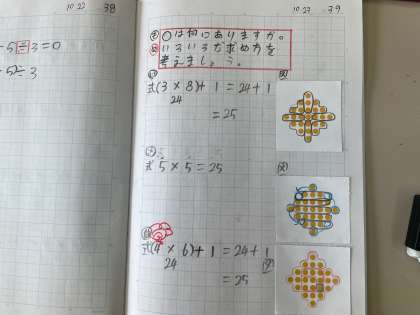 10.22 - 38
-5÷3=0
-5)÷3
10.23 - 39
〇は何こありますか。
いろいろな求め方を
考えましょう。
式(3×8)+1=24+1
24
=25
図
式 5×5=25
図
式(4×6)+1=24+1
24
=25
図